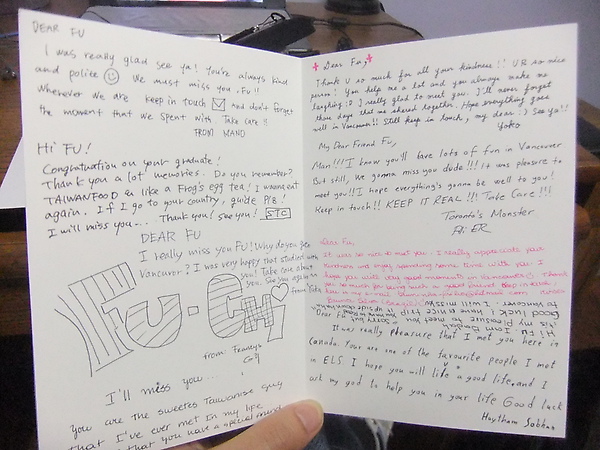 DEAR FU
I was really glad see ya! You're always kind
and police We must miss you. Fu!!
Wherever we are keep in touch and don't forget
the moment that we spent with Take care!!
FROM MANO
Hi FU!
Congratuation on your graduate!
Thank you a lot memories. Do you remember?
TAIWANFOOD is like a Frog's egg tea! I wanna eat
again. If I go to your country, guide Plz!
I will miss you... Thank you! See you! STC
DEAR FU
I really miss you FU! Why do you go
Vancuver? I was very happy that studied with
you! Take care about
you. See you again
from
FU-CHI
from: Franny
I'll miss you...
you are the sweetes Taiwanise guy
that I've ever met in my life
that you have a special
Dear Fu,
Thank U so much for all your kindness!! UR so nice
person! You help me a lot and you always make me
laughing :D I really glad to meet you. I'll never forget
those days that we shared together. Hope everything goes
well in Vancouver!! Still keep in touch, my dear :) See ya!!
Yoko
My Dear Friend Fu,
Man!!! I know you'll have lots of fun in Vancouver
But still, We gonna miss you dude!!! It was pleasure to
meet you!! I hope everything's gonna be well to you!
Keep in touch!! KEEP IT REAL!!! Take Care!!!
Toronto's Monster
Dear Fu,
It was so nice to meet you. I really appreciate your
kindness and enjoy spending some time with you. I
hope you will have good moments in Vancouver Thank
you so much for being such a good friend. Keep in touch.
Hi Fu I am
It's my pleasure to meet you
Good luck, have nice trip
to Vancouver. I will miss
Dear Fu
It was really pleasure that I met you here in
Canada. Your are one of the favourite people I met
in ELS. I hope you will life a good life and I
ask my god to help you in your life Good luck
Haytham